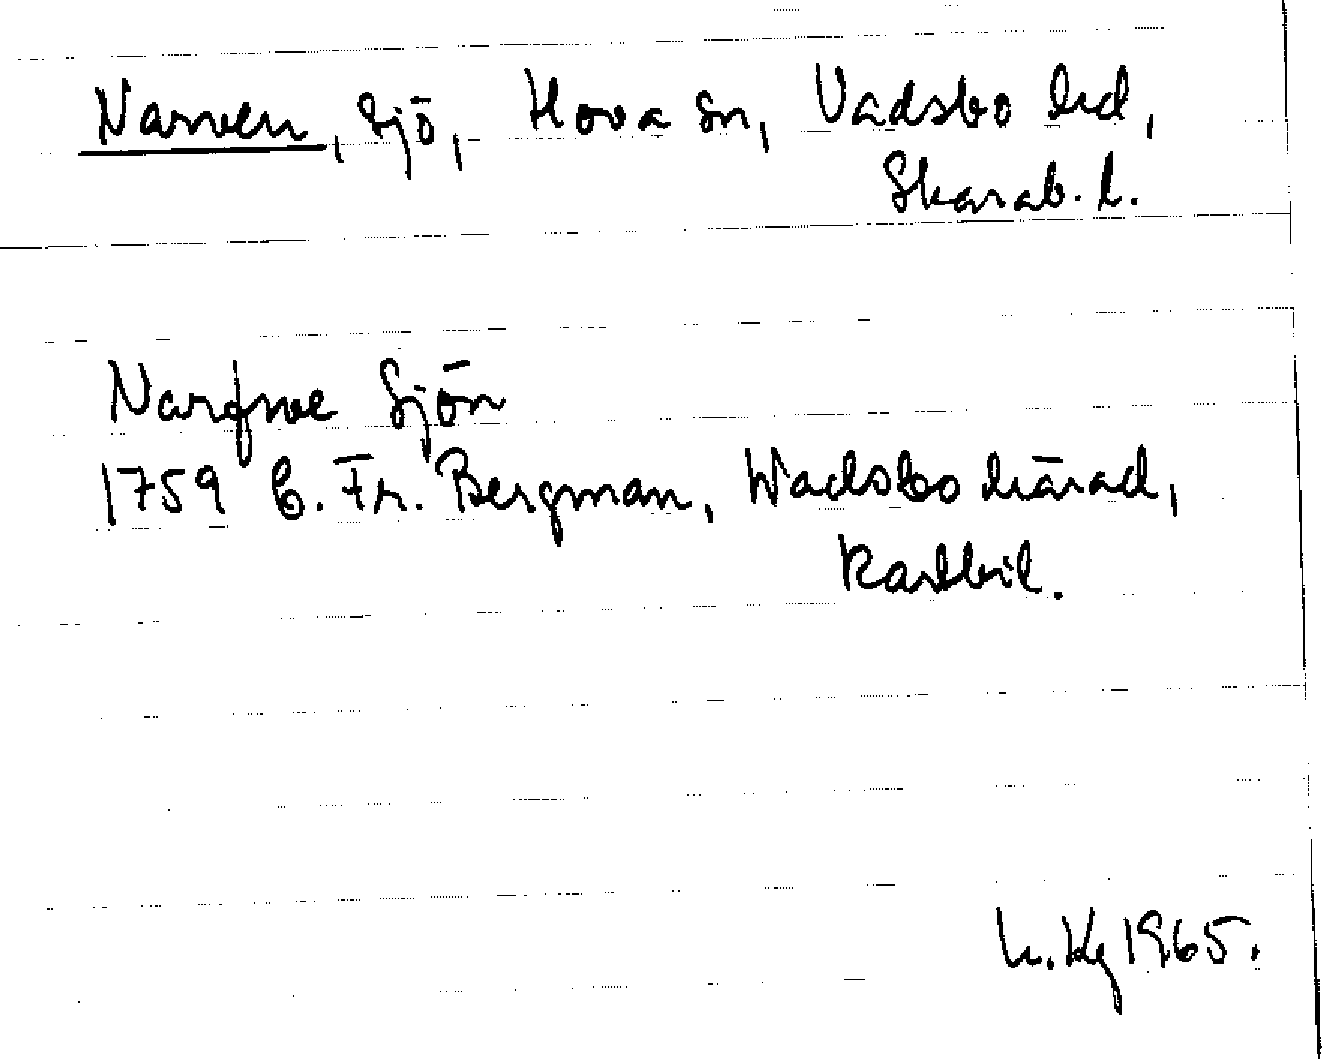 Narven, sjö, Hova sn, Vadsbo hd,
Skarab. l.
Narfwe Sjön
1759 C. Fr. Bergman, Wadsbo härad,
Kartbil.
1965.